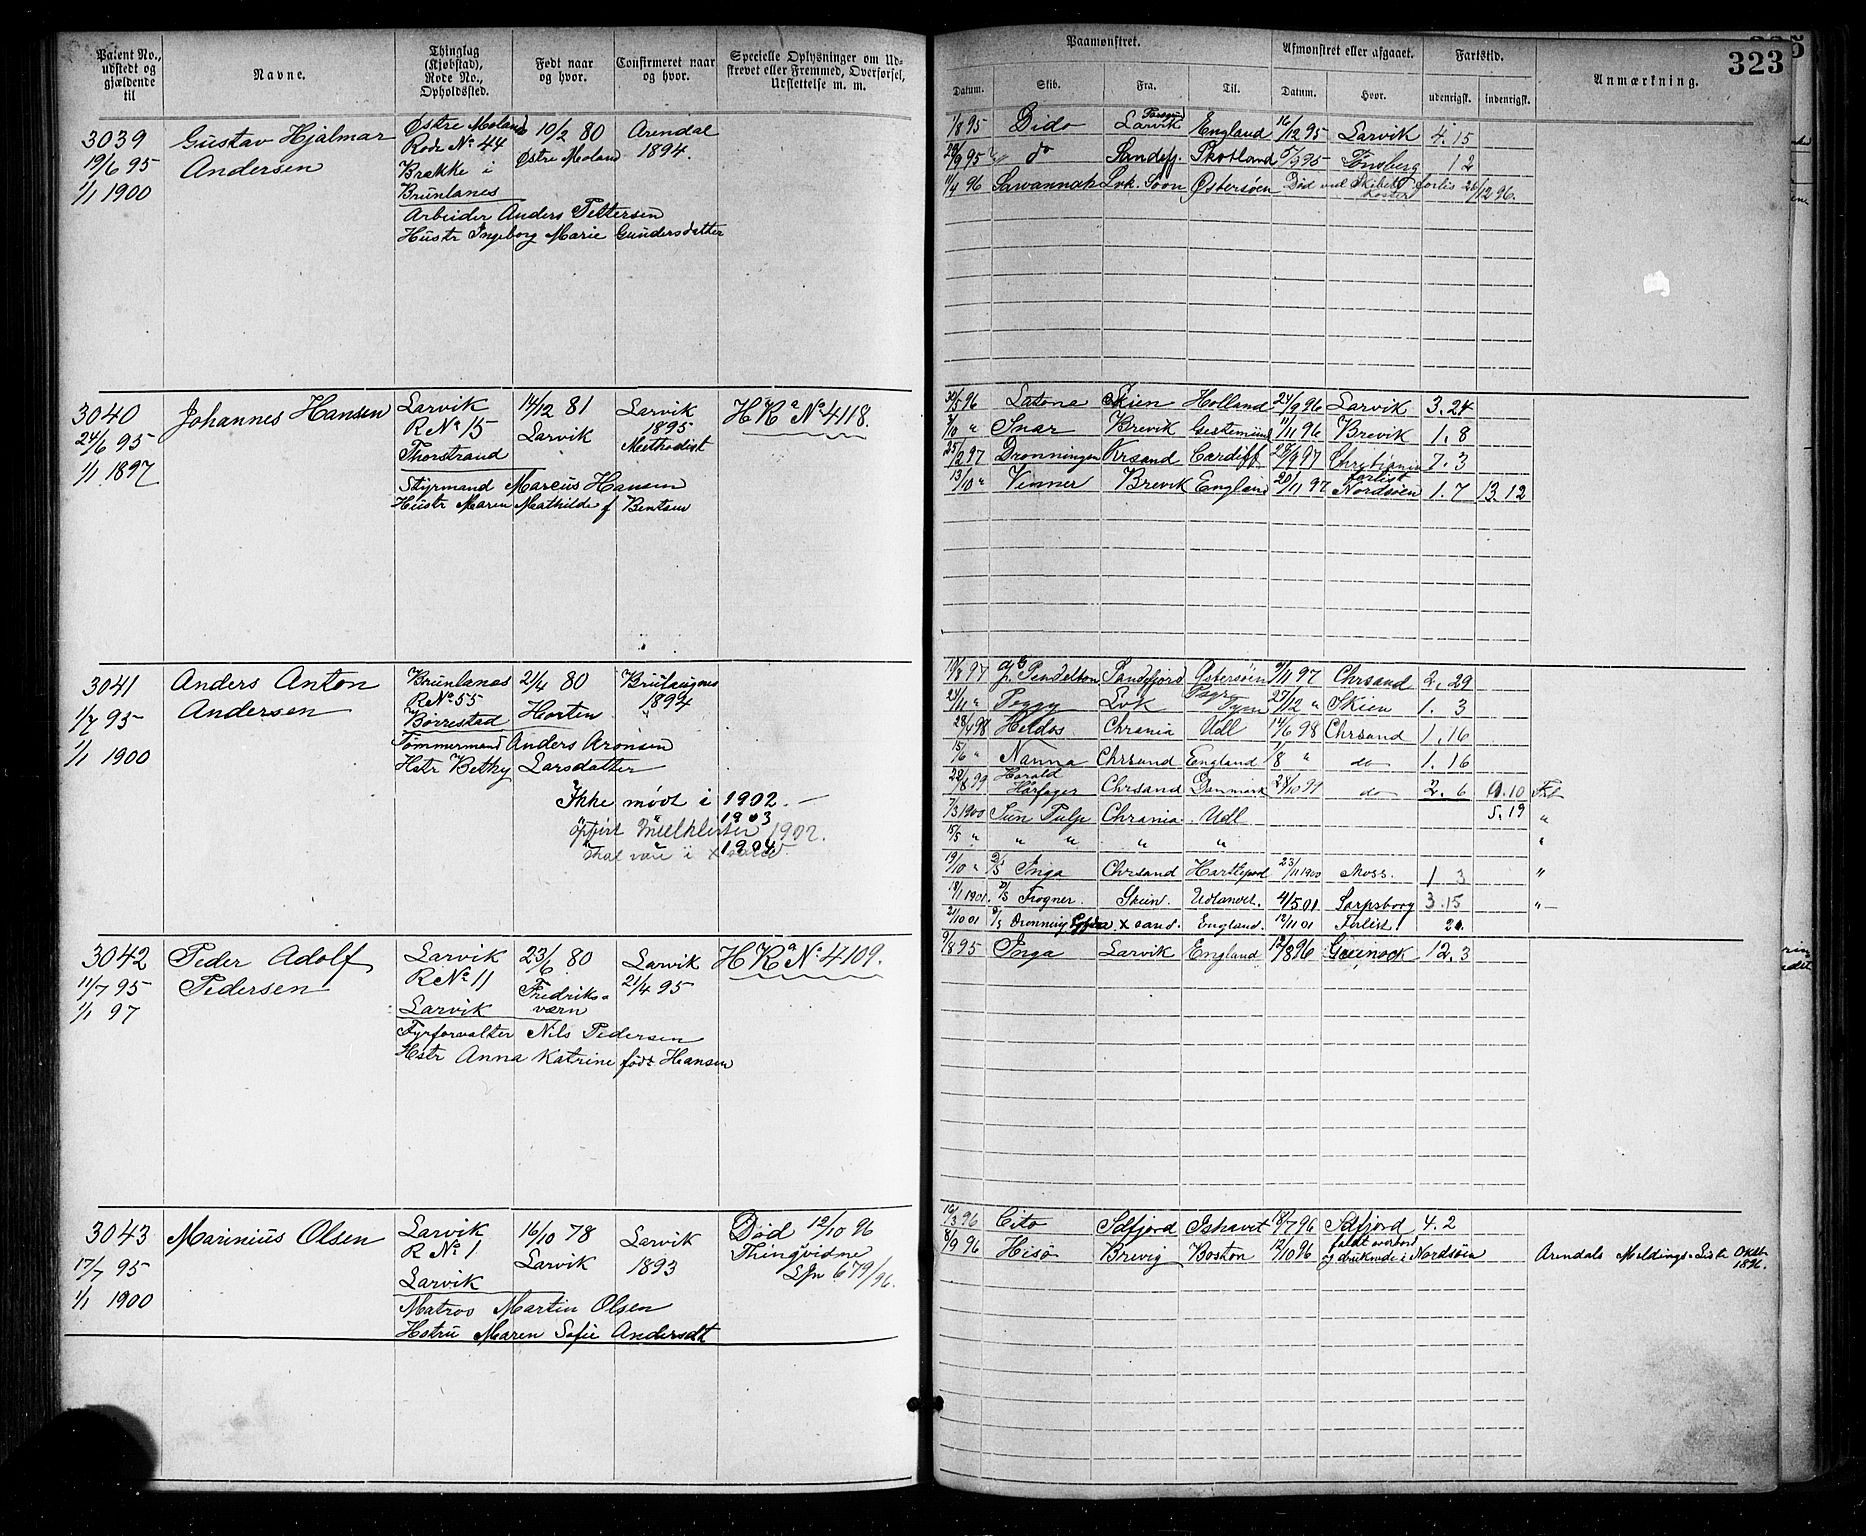 323
Patent No., udstedt og gjældende til
Navne.
Thinglag (Kjøbstad), Rode No., Opholdssted.
Født naar og hvor.
Confirmeret naar og hvor.
Specielle Oplysninger om Udskrevet eller Fremmed, Overførsel, Udslettelse m. m.
Paamønstret.
Afmønstret eller afgaaet.
Fartstid.
Anmærkning.
Datum.
Skib.
Fra.
Til.
Datum.
Hvor.
udenrigsk.
indenrigsk.
3039
19/6 95
1/1 1900
Gustav Hjalmar
Andersen
Østre Moland
Rode No 44
Brække i
Brunlanes
10/2 80
Østre Moland
Arendal
1894.
Arbeider Anders Pettersen
Hustr Ingeborg Marie Gundersdatter
1/8 95 Dido Larvik England 16/12 95 Larvik 4.15
do Sandefj. Skotland Tønsberg 12
11/4 96 Sawannah Lvk. Soon Østersøen Død ved Skibets forlis 26/12 96.
3040
24/6 95
1/1 1897
Johannes Hansen
Larvik
R No 15
Thorstrand
14/12 81
Larvik
Larvik
1895
Methodist
H R a No 4118.
Styrmand Marcus Hansen
Hustr Maren Mathilde f Bentsen
30/5 96 Latona Skien Holland 24/9 96 Larvik 3.24
Snar Brevik Gestemünd 11/11 96 Brevik 1.8
25/2 97 Dronningen Krsand Cardiff 28/9 97 Christiania 7.3
13/10 " Vimmer Brevik England 20/11 97 forlist Nordsøen 1.7 13.12
3041
1/7 95
1/1 1900
Anders Anton
Andersen
Brunlanes
R No 55
Børrestad
21/4 80
Horten
1894
Tømmermand Anders Aronsen
Hstr Bethy Larsdatter
Ikke mødt i 1902.
" " 1903
1902.
" " 1904
skal være i
19/7 97 Pendelton Sandefjord Østersøen 9/11 97 Chrsand 2.29
24/11 " Peggy Lvk 27/12 " Skien 1.3
28/4 98 Heldos Chrania Udl 14/6 98 Chrsand 1.16
15/6 " Nanna Chrsand England 7/8 " do 1.16
22/8 99 Harald Harfager Chrsand Danmark 28/10 99 do 2.6 10
7/3 1900 Sun Tulp Chrania Udl 5.19 "
15/5 " " " " " "
19/10 " D/S Inga Chrsand Hartlepool 23/11 1900 Moss. 1 3 "
18/1 1901 D/S Frogner. Skien. Udlandet. 4/5 01 Sarpsborg 3.15 "
2/10 01 D/S Dronning Sofia Xsand. England. 12/11 01 Forlist 20.
3042
11/7 95
1/1 97
Peder Adolf
Pedersen
Larvik
R No 11
Larvik
23/6 80
Fredriks-
værn
Larvik
21/4 95
H R a No 4109.
Fyrforvalter Nils Pedersen
Hstr Anna Katrine født Hansen
9/8 95 Inga Larvik England 12/8 96 Greenock 12.3
3043
17/7 95
1/1 1900
Marinius Olsen
Larvik
R No 1
Larvik
16/10 78
Larvik
Larvik
1893
Død 12/10 96
Thingvidne
679/96.
Matros Martin Olsen
Hstru Maren Sofie Andersdt
Cito Sdfjord Ishavet 18/7 96 Sdfjord 4.2
8/9 96 Hisø Brevig Boston 12/10 96 faldt overbord og druknede i Nordsøen Arendals Meldings-Liste Oktbr 1896.